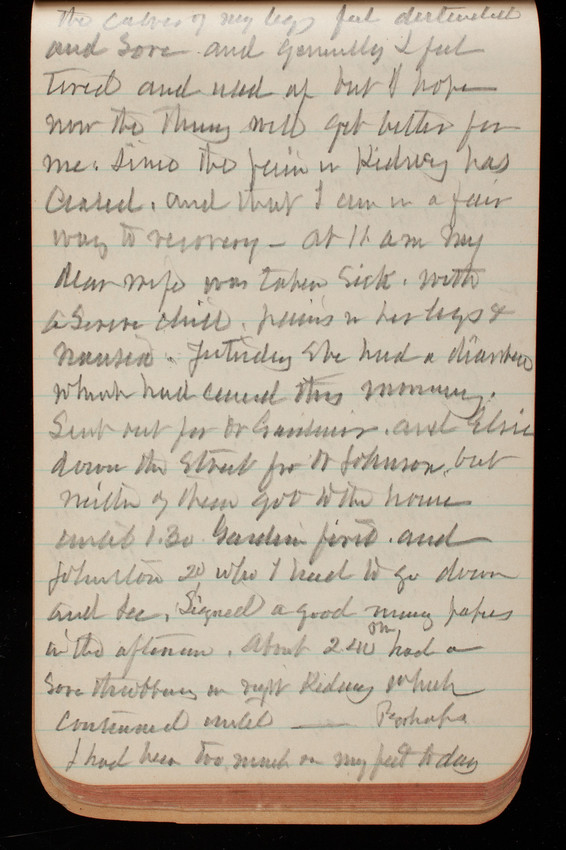 the calves of my legs feel distended
and Sore and generally I feel
tired and used up but I hope
now the things will get better for
me. Since the pain in Kidney has
Ceased. and that I am in a fair
way to recovery - at 11 am My
dear wife was taken Sick. with
a Severe chill. pains in her legs &
nausea. Yesterday She had a diarrhea
which had ceased this morning.
Sent out for Dr Gardiner. and Elsie
down the Street for Dr Johnson, but
neither of these got to the house
until 1.30 Gardin first. and
Johnston 20 who I had to go down
and see, Signed a good many papers
in the afternoon. About 2 40 pm had a
Sore throbbing in right Kidney which
continued until — Perhaps
I had been too much on my feet to day